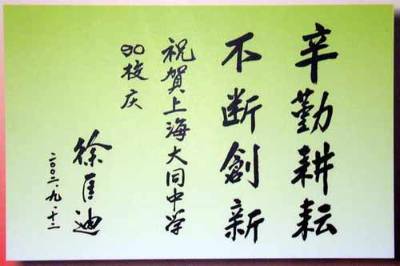 辛勤耕耘
不断創新
祝賀上海大同中学
90校庆
徐匡迪
二〇〇二.九.十二